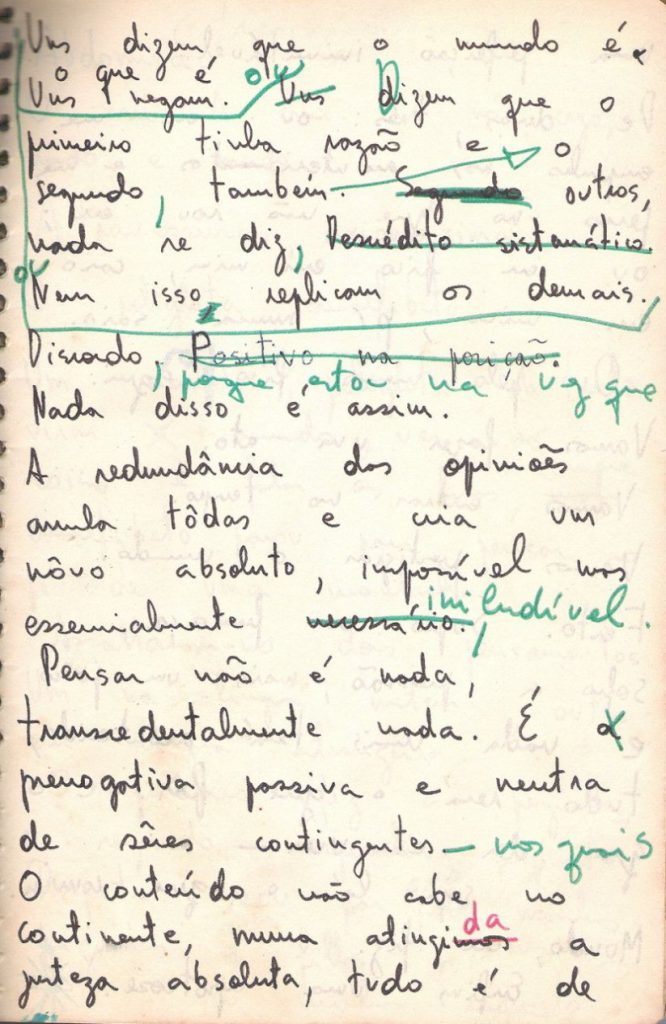 Uns dizem que o mundo é
o que é
Uns negam. ou Uns Dizem que o
primeiro tinha razão e o
segundo, tambem. Segundo outros,
nada se diz, Desédito sistemático.
ou
Nem isso replicam os demais.
Discordo, Positivo na posição.
, porque estou na vez que
Nada disso é assim.
A redundância das opiniões
anula tôdas e cria um
nôvo absoluto, impossível mas
iniludível.
essencialmente necessário.,
Pensar não é nada,
transcedentalmente nada. É a
prerrogativa passiva e neutra
de sêres contingentes – nos quais
O conteúdo não cabe no
da
continente, numa atingimos a
justeza absoluta, tudo é de